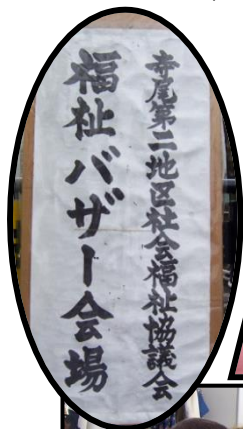 寺尾第二地区社会福祉協議会
福祉バザー会場